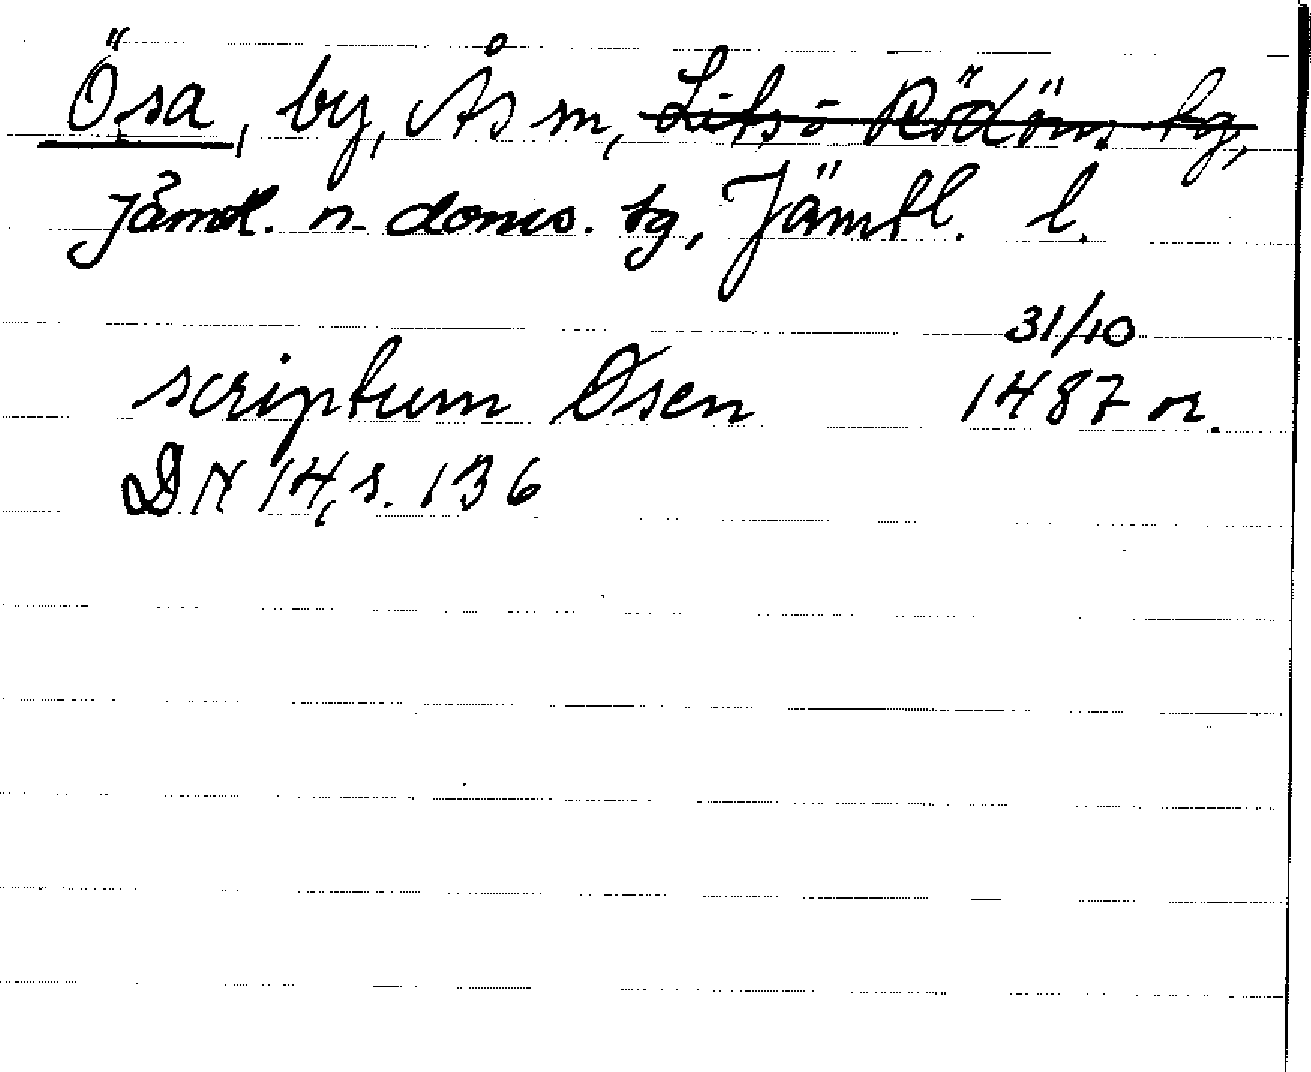 Ösa, by, Ås sn, Lits o Rödöns tg,
Jämtl. n. doms. tg, Jämtl. l.
31/10
scriptum Øsen 1487 or.
DN 14, s. 136